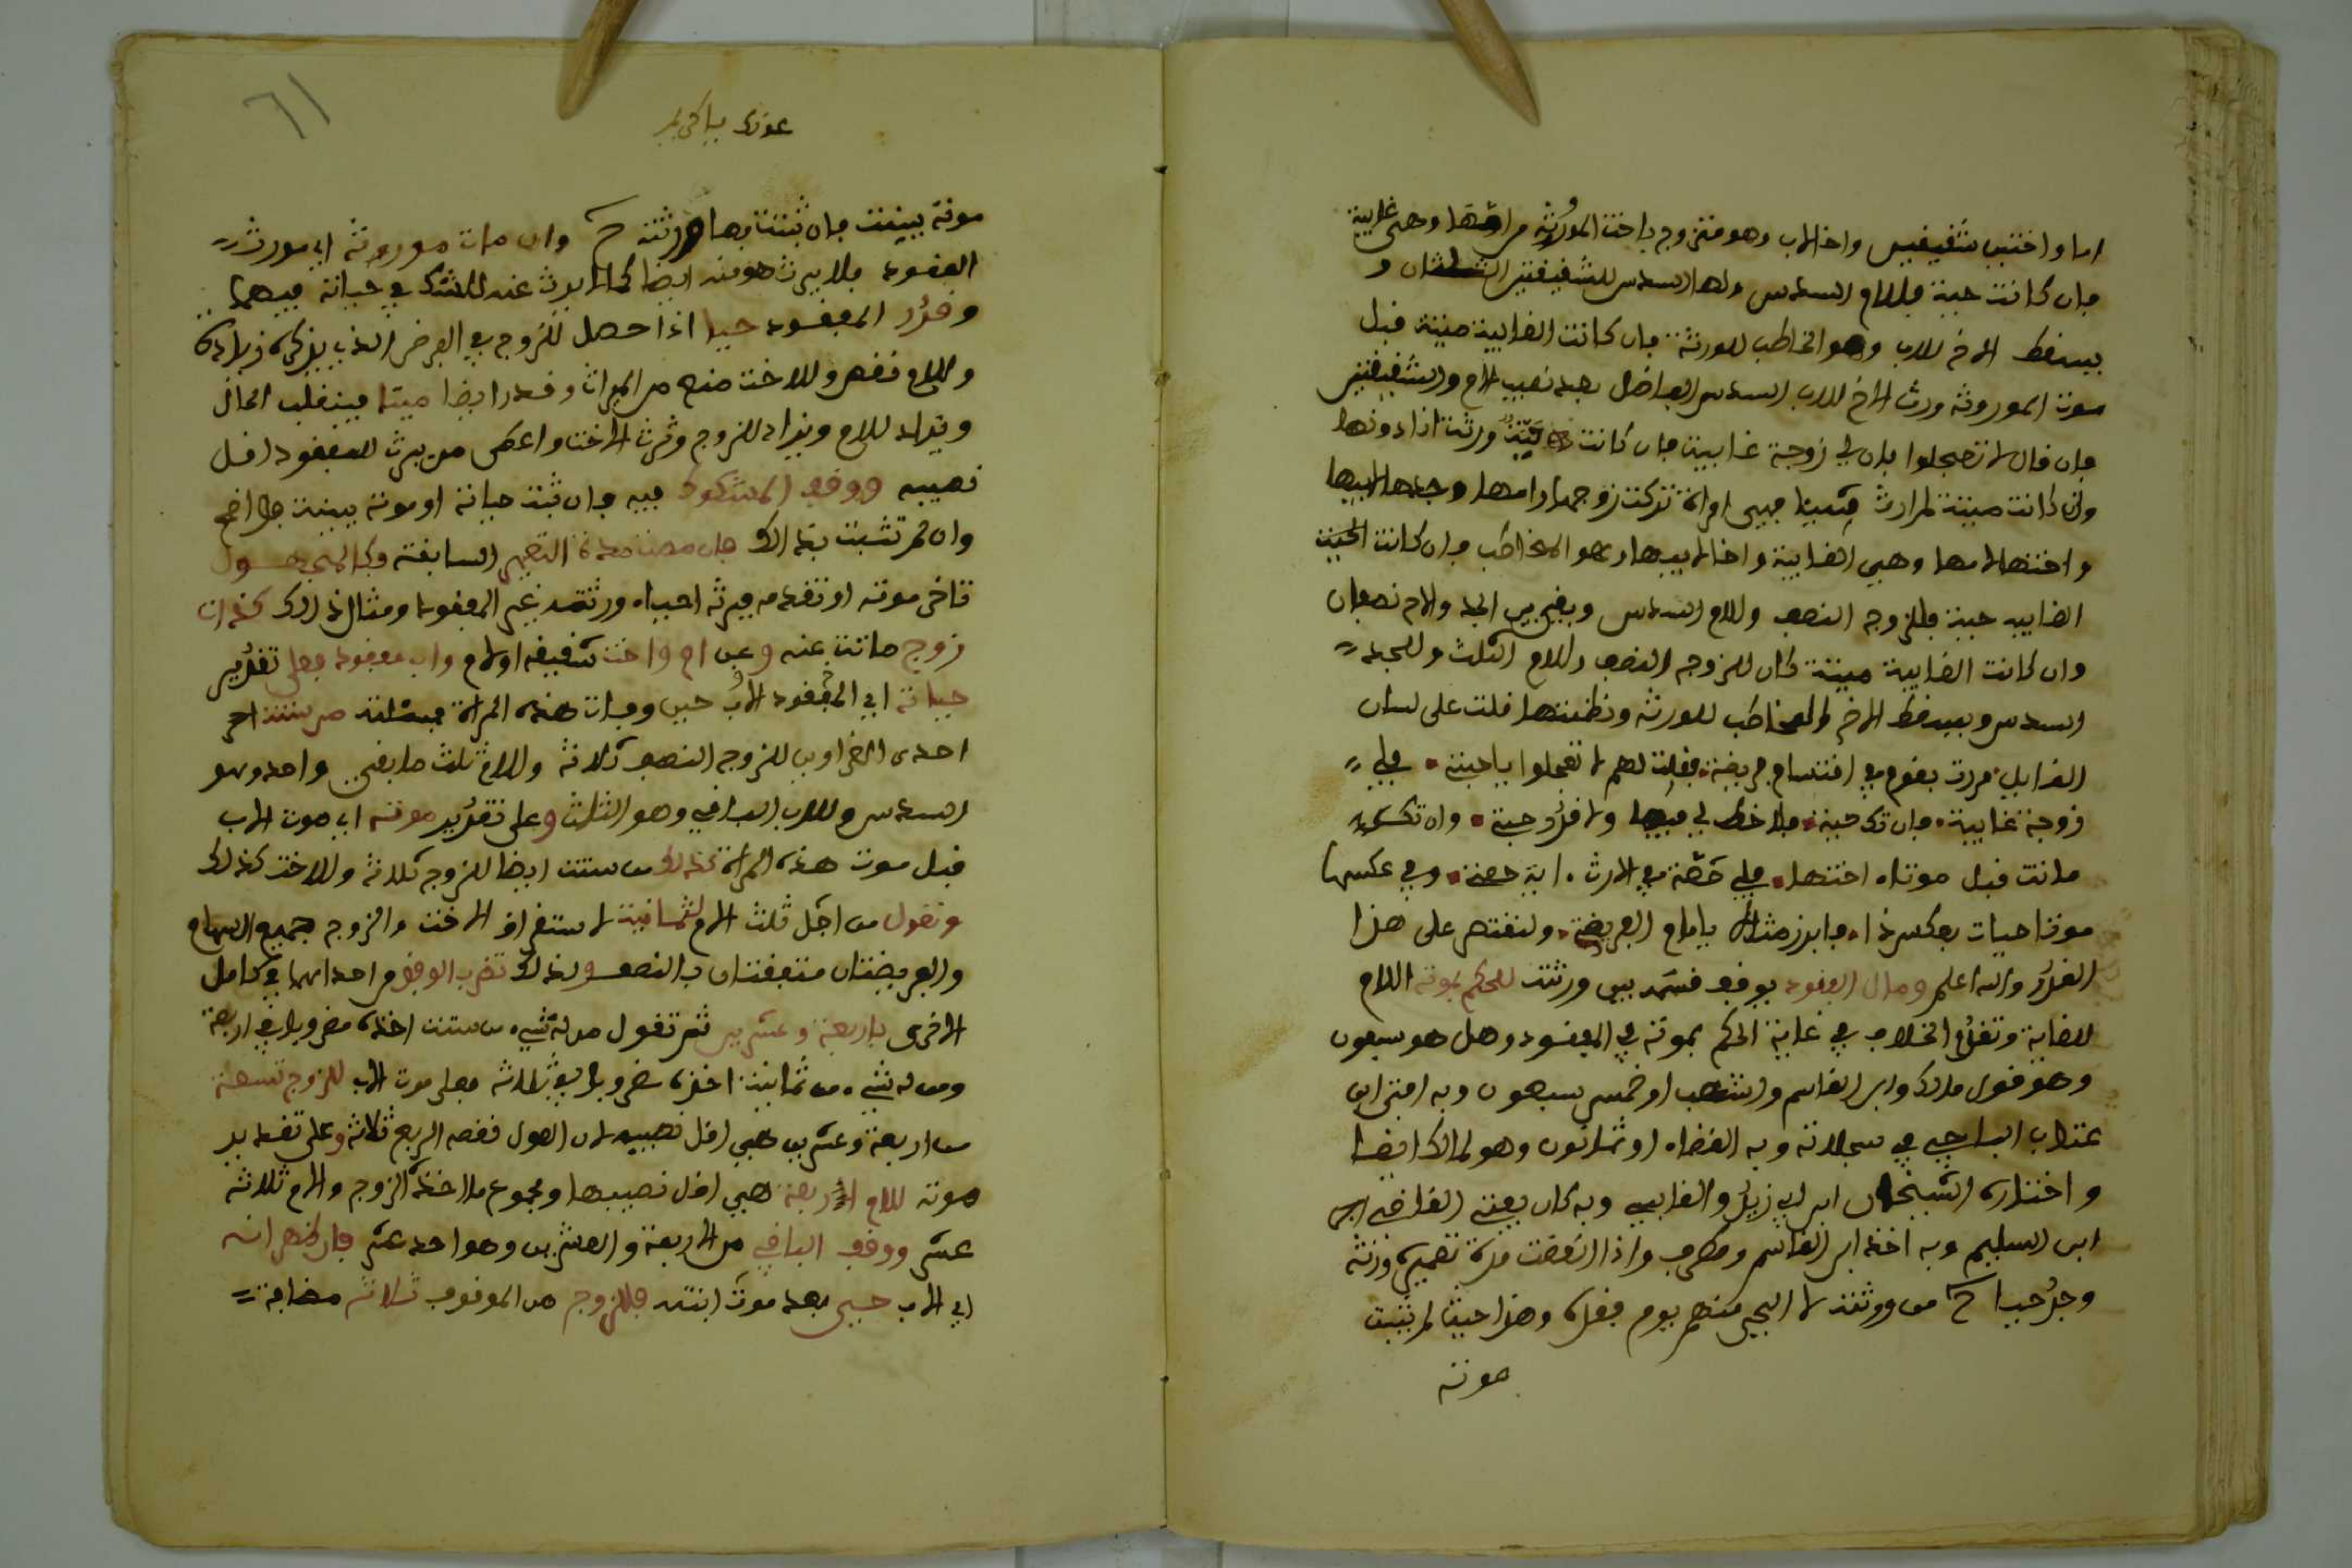 اما واختين شقيفتين واخ لاب وهو متزوج باخت الموروثة من امها وهي غايبة
فان كانت حية فللام السدس ولها السدس للشفيفتين الثلثان و
يسفط الاخ للاب وهو المخاطب للورثة فان كانت الغايبة ميتة فبل
موت الموروثة ورث الاخ للاب السدس الفاضل بعد نصيب الام والشفيفتين
فان فال لا تعجلوا فان لي زوجة غايبة فان كانت حية ورثت انا دونها
وان كانت ميتة لم ارث شيئا فهي امراة تركت زوجها وامها وجدها لابيها
واختها لامها وهي الغايبة واخا لابيها وهو المخاطب فان كانت الحية
الغايبة حية فللزوج النصف وللام السدس وبفي بين الجد والاخ نصفان
وان كانت الغايبة ميتة كان للزوج النصف وللام الثلث وللجد
السدس ويسفط الاخ المخاطب للورثة ونظمتها فلت على لسان
الفايل مررت بفوم في افتسام فريضة ففلت لهم لا تعجلوا يا حبتة فلي
زوجة غايبة فان تك حية فلا حظ لي فيها ولا فدر حبة وان تك
ماتت فبل موتاه اختها فلي حصة في الارث اية حصة وفي عكسها
موتا حيات بعكس ذا فابرز مثال يا امام الفريضة ولنفتصر على هذا
الفدر والله اعلم ومال المفقود يوفف فسمه بين ورثته للحكم بموته اللام
للغاية وتفدم الخلاف في غاية الحكم بموته في المفقود وهل هو سبعون
وهو فول مالك وابن الفاسم واشهب او خمس وسبعون وبه افتى ابن
عتاب الباجي في سجلاته وبه الفضاء او ثمانون وهو لمالك ايضا
واختاره الشيخان ابن ابي زيد والفابسي وبه كان يفتي الفاضي ابن
ابن السليم وبه اخذ ابن الفاسم ومطرف واذا انقضت مدة تعميره ورثه
وجد حيا ح من ورثته لا البحي منهم يوم ففده وهذا حيث لم تثبت
موته
عونك يا كريم
٦١
موته ببينة فان ثبتت بها ورثته ح وان مات موروثه اي مورث
المفقود فلا يرث هو منه ايضا كما لا يورث عنه للشك في حياته فيهما
وفدر المفقود حيا اذا حصل للزوج في الفرض الذي يذكره زيادة
وللام نفص وللاخت منع من الميراث وفدر ايضا ميتا فينفلب الحال
ويزاد للام ويزاد للزوج وترث الاخت واعطى من يرث المفقود افل
نصيبه ووفف المشكوك فيه فان ثبت حياته او موته ببينة فواضح
وان لم تثبت بذلك فان مضت مدة التعمير السابقة فكالمجهول
تاخر موته او تفدمه فيرثه احياء ورثته غير المفقود ومثال ذلك كذات
زوج ماتت عنه وعن ام واخت شفيفة او لاب واب مفقود فعلى تفدير
حياته اي المفقود الاب حين وفات هذه المراة فمسئلته من ستة اخر
احدى الغراوين للزوج النصف ثلاثة وللام ثلث ما بفي واحد وهو
السدس وللاب البافي وهو الثلث وعلى تفدير موته اي موت الاب
فبل موت هذه المراة كذلك من ستة ايضا للزوج ثلاثة وللاخت كذلك
وتعول من اجل ثلث الام لثمانية لاستغراف الاخت والزوج جميع السهام
والفريضتان متففتان بالنصف ولذلك تضرب الوفف من احداهما في كامل
الاخرى باربعة وعشرين ثم تفول من له شيء من ستة اخذه مضروبا في اربعة
ومن له شيء من ثمانية اخذه مضروبا في ثلاثة فعلى موت الاب للزوج تسعة
من اربعة وعشرين هي افل نصيبه لان العول نفصه الربع ثلاثة وعلى تفدير
موته للام اربعة هي افل نصيبها ومجموع ما اخذه الزوج والام ثلاثة
عشر ووفف البافي من الاربعة والعشرين وهو احد عشر فان ظهر انه
اي الاب حيى بعد موت ابنته فللزوج من الموفوف ثلاثة مضافة